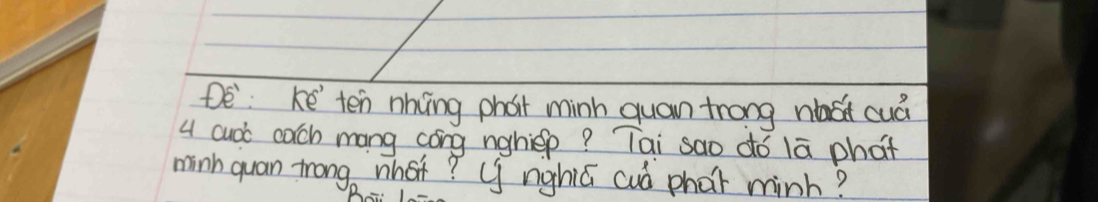 Đề: Kể tên những phát minh quan trọng nhất của
4 cuộc cách mạng công nghiệp? Tại sao đó là phát
minh quan trọng nhất? Ý nghĩa của phát minh?
Bài làm